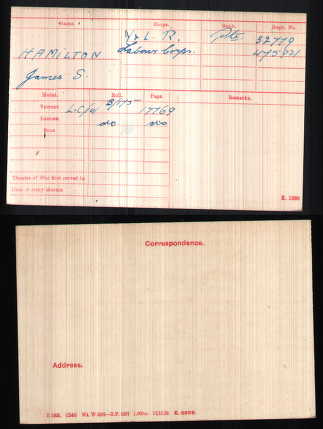 Name. Corps. Rank. Regtl. No.
Y & L R. Pte 32779
HAMILTON Labour Corps. 475021
James S.
Medal. Roll. Page. Remarks.
Victory 17769
British do do
Star
Theatre of War first served in
Date of entry therein
K. 1380
Correspondence.
Address.